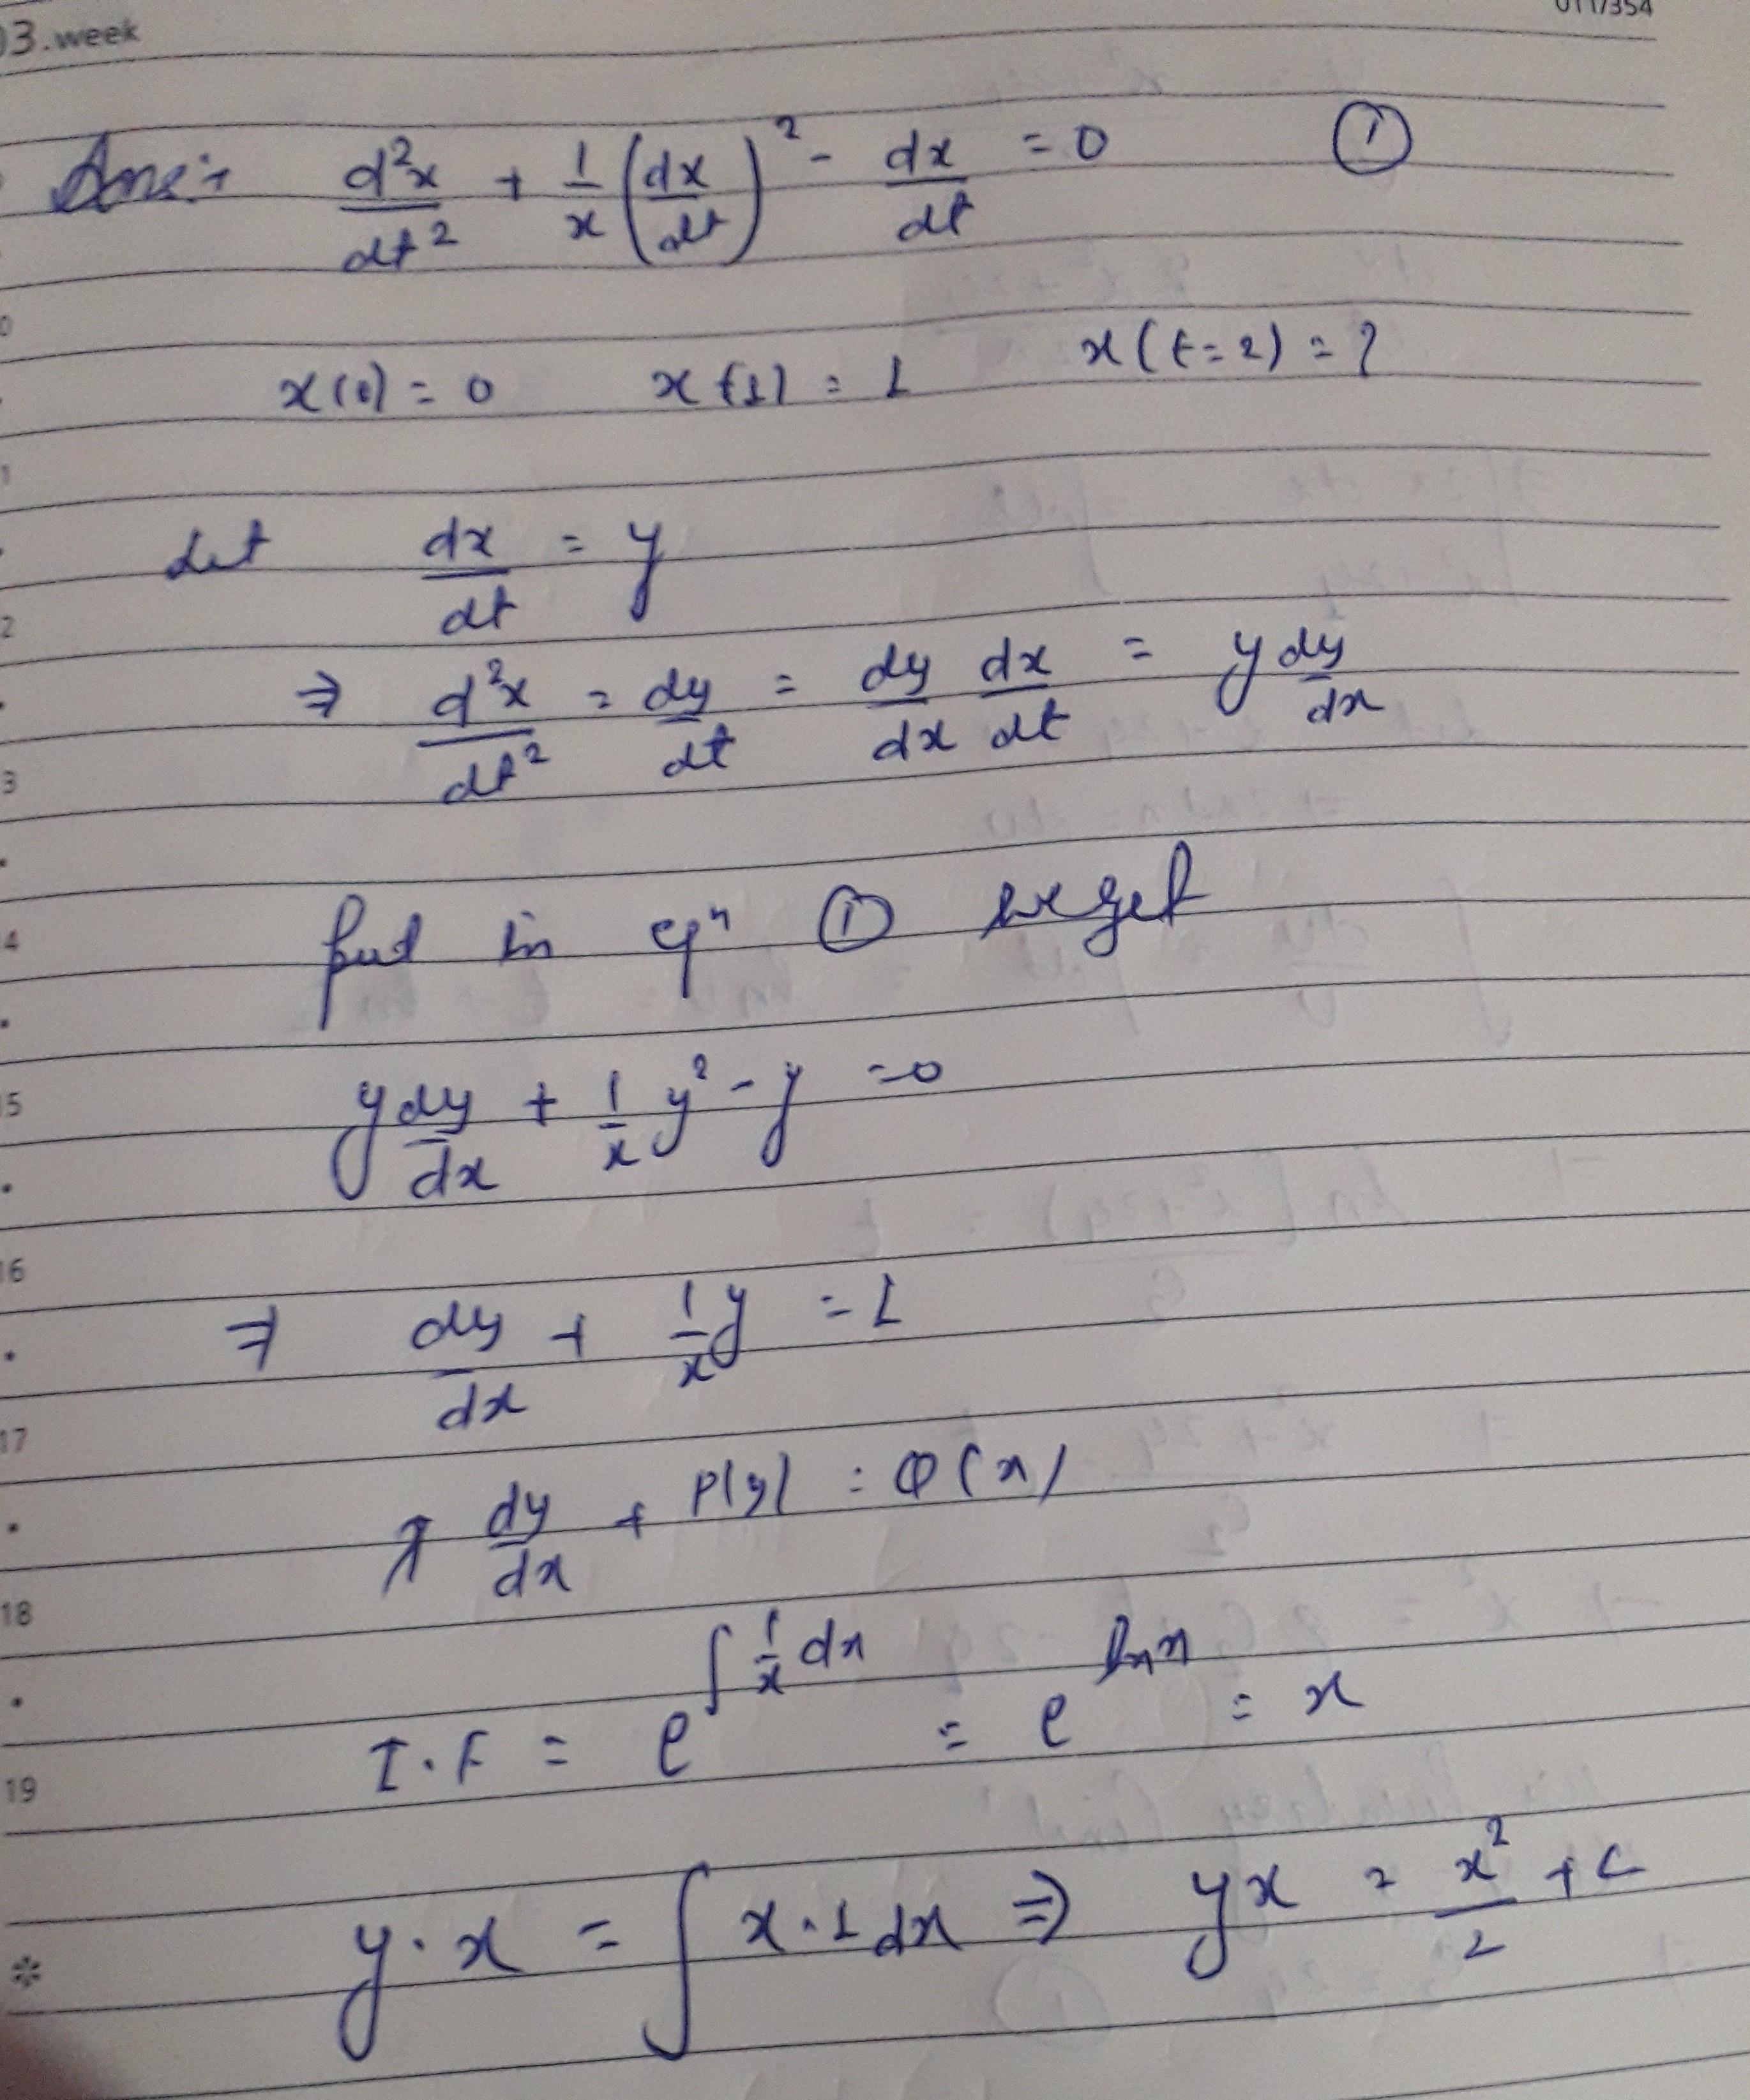 03.week
011/354
Ans:- d²x/dt² + 1/x (dx/dt)² - dx/dt = 0 ①
x(0) = 0 x(1) = 1 x(t=2) = ?
Let dx/dt = y
⇒ d²x/dt² = dy/dt = dy/dx dx/dt = y dy/dx
put in eqⁿ ① we get
y dy/dx + 1/x y² - y = 0
⇒ dy/dx + 1/x y = 1
dy/dx + P(y) = Q(x)
I.F = e^∫ 1/x dx = e^ln x = x
y·x = ∫ x·1 dx ⇒ yx = x²/2 + c
2
3
4
15
16
17
18
19